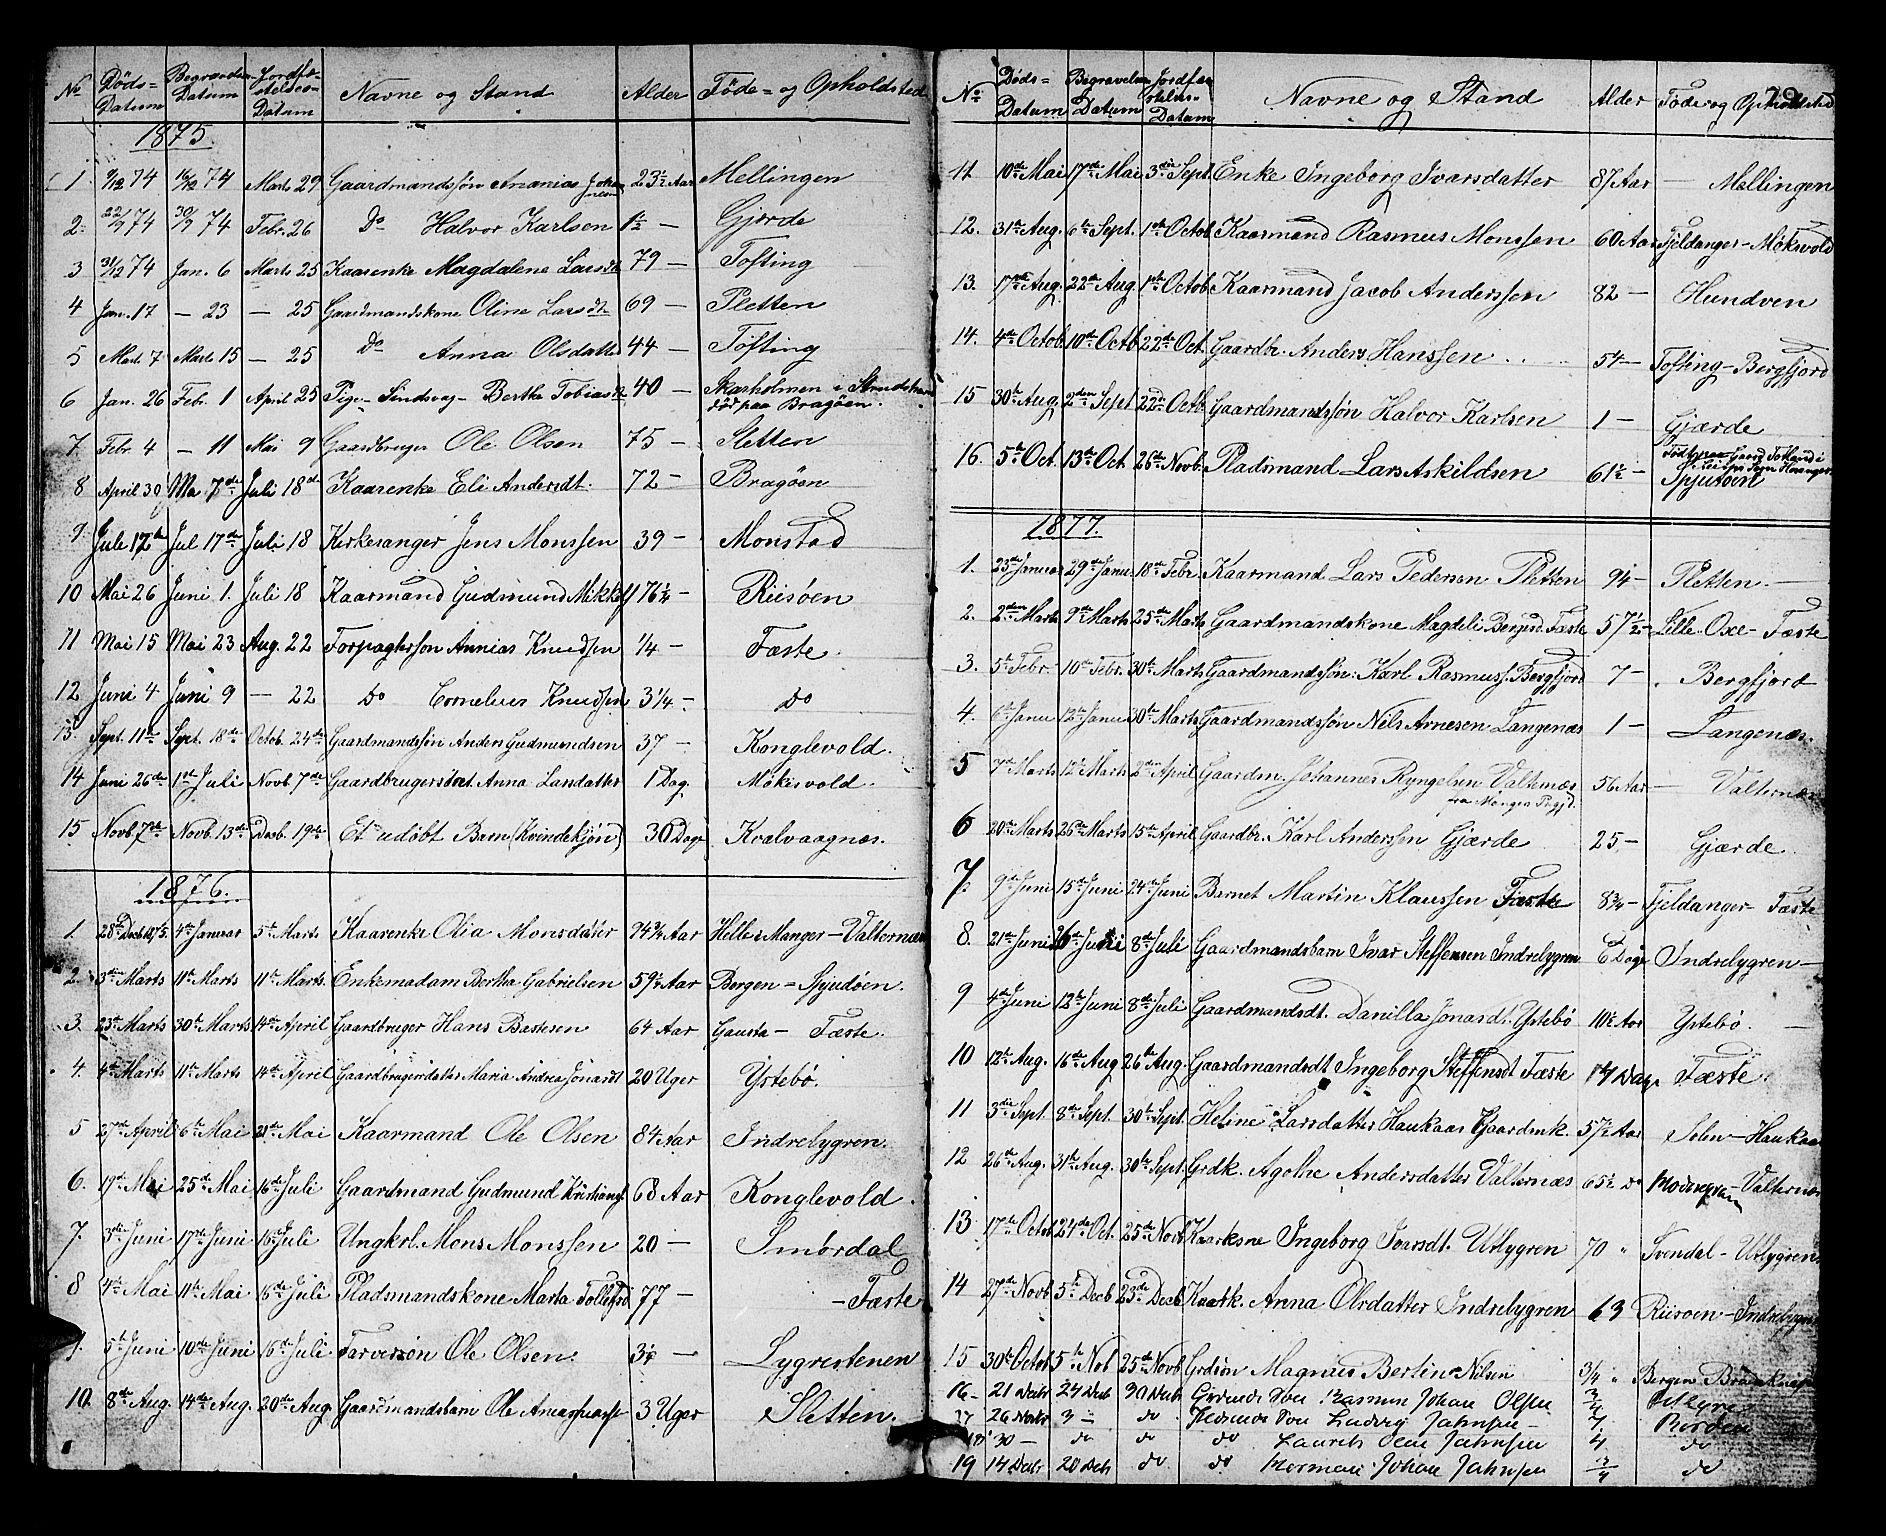 No Døds= Datum Begravelses Datum Jordfæ- stelses- Datum Navne og Stand Alder Føde= og Opholdsted
1875
1 9/12 74 16/12 74 Marts 29 Gaardmandssøn Ananias Johannesen 23½ Aar Mellingen
2. 22/9 74 30/9 74 Febr. 26 Do Halvor Karlsen 1½ — Gjerde
3 31/12 74 Jan. 6 Marts 25 Kaarenke Magdalene Larsdt 79 — Tofting
4 Jan. 17 — 23 — 25 Gaardmandskone Oline Larsdt 69 — Sletten
5 Mart 7 Marts 15 — 25 Do Anna Olsdatter 44 — Tofting
6 Jan. 26 Feb. 1 April 25 Pige- Sindsvag- Berthe Tobiasdt 40 — Skarholmen i
død paa Bragøen.
7 Febr. 4 — 11 Mai 9 Gaardbruger Ole Olsen 75 — Sletten
8 April 30 Ma 7de Juli 18de Kaarenke Eli Andersdt. 72 — Bragøen
9. Juli 12te Jul 17de Juli 18 Kirkesanger Jens Monssen 39 — Monstad
10 Mai 26 Juni 1. Juli 18 Kaarmand Gudmund Mikkels 76¼ — Riisøen
11 Mai 15 Mai 23 Aug. 22 Forpagtersøn Annias Knudssen ¼ — Fæste.
12 Juni 4 Juni 9 — 22 Do Cornelius Knudssen 3¼ — do
13 Sept. 11te Sept. 18de Octob. 24de Gaardmandssøn Anders Gudmundsen 37 — Konglevold.
14 Juni 26de 1ste Juli Novb. 7de Gaardbrugersdat. Anna Larsdatter 1 Dag. Mökesvold
15. Novb. 7de Novb. 13de Decb. 19te Et udöbt Barn (Kvindekjøn) 30 Dage Kvalvaagnes.
1876.
1. 28de Decb 1875. 4de Januar 5te Marts Kaarenke Olia Monsdatter 74¾ Aar Helle i Manger — Valternæs
2. 3die Marts 11te Marts 11te Marts. Enkemadam Bertha Gabrielsen 59½ Aar Bergen = Spjudøen.
3. 23de Marts 30te Marts 14de April Gaardbruger Hans Bertesen 64 Aar Gausta — Fæste.
4. 4de Marts 11te Marts 14de April Gaardbrugerdatter Maria Andrea Jonasdt 20 Uger Ystebø.
5 27de April 6te Mai 21de Mai Kaarmand Ole Olsen 84 Aar Indrebygren.
6. 19de Mai 25de Mai 16de Juli Gaardmand Gudmund Kristians 68 Aar Konglevold.
7. 3die Juni 17de Juni 16de Juli Ungkrl. Mons Monssen 20 — Smørdal
8 4de Mai 11te Mai 16de Juli Pladsmandskone Marta Tollefsd 77 — — Fæste
9. 5te Juni 10de Juni 16de Juli Farversøn Ole Olsen. — Lygrestenen
10. 8de Aug. 14de Aug. 20de Aug. Gaardmandsbarn Ole 3 Uger Sletten.
No Døds= Datum Begravelses Datum Jordfæ- stelses- Datum Navne og Stand Alder Føde og Opholdsted
11. 10de Mai 17de Mai 3die Sept. Enke Ingeborg Ivarsdatter 87 Aar — Mellingen
12. 31te Aug. 6te Sept. 1ste Octob Kaarmand Rasmus Monssen 60 Aar Fjeldanger — Møksvold
13. 17de Aug. 22de Aug 1ste Octob Kaarmand Jacob Anderssen 82 — Hundven
14. 4de Octob 10de Octb 22de Oct. Gaardbr. Anders Hanssen 54 — Tofting — Bergfjord
15 30te Aug. 2den Sept 22de Octb Gaardmandssøn Halvor Karlsen 1 — Gjærde
16. 5te Oct. 13de Oct. 26de Novb. Pladsmand Lars Askildsen 61½ — Født paa Gaard i
Spjutøen
1877.
1. 23de Januar 29de Janu. 18de Febr. Kaarmand Lars Pedersen Sletten 94 — Sletten. —
2. 2den Marts 9de Marts 25de Marts Gaardmandskone Magdeli Bergesd. Fæste 57½ — Lille-Oxe — Fæste
3. 5te Febr. 10de Febr. 30te Marts Gaardmandssøn: Karl Rasmuss. Bergfjord 7 — Bergfjord
4. 6te Janu 12te Janu 30te Marts Gaardmandssøn Nils Arnesen Langenæs 1 — Langenæs.
5 7de Marts 12te Marts 2den April Gaardm. Johannes Ryngelsen Valternæs
fra Manger Prgjd. 56 Aar — Valternæs
6 20de Marts 26de Marts 15de April Gaardbr. Karl Anderssen Gjærde 25 — Gjærde.
7. 9de Juni 15de Juni 24de Juni Barnet Martin Klaussen Fæste 8¾ — Fjeldanger — Fæste
8. 21de Juni Juni 8de Juli Gaardmandsbarn Ivar Steffensen Indrebygren 6 Dage Indrebygren —
9 4de Juni 12te Juni 8de Juli Gaardmandsdt. Danilla Jonasdt. Ystebø 10½ Aar Ystebø. —
10 12te Aug. 16de Aug 26de Aug. Gaardmandsdt Ingeborg Steffensdt Fæste 14 Dage Fæste.
11 3die Sept. 8de Sept. 30te Sept. Heline Larsdatter Haukaas Gaardmk. 57½ Aar Solen — Haukaas
12 26de Aug. 31te Aug. 30te Sept. Grdk. Agothe Andersdatter Valternæs 65½ do — Valternæs
13 17de Octob 24de Oct. 25de Novb Kaarksne Ingeborg Ivarsdt. Utlygren 70 " Svendal — Utlygren
14 27de Novb 5te Decb 23de Decb Kaark. Anna Olsdatter Indrebygren 63 Riisøen — Indrebygren
15 30te Octob 5te Nob 25de Novb Grdsøn Magnus Bertin Nilsen 3/4 " Bergen
16 — 21 Decbr 24 Decb 30 Decb Rasmus Johan Olsen
17 26 3 — do Ludvig Jahnsen 7
18 30 — do do do Laurits Olai Jahnsen 4 do
19 14 Decbr 20 Decb do do Herman Johan Jahnsen do